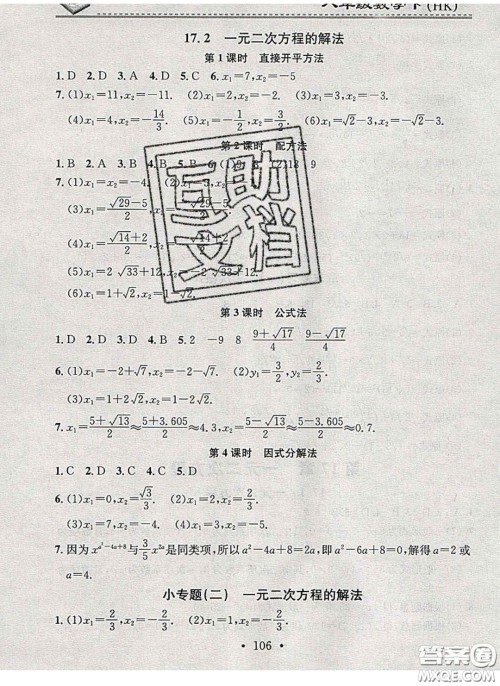 八年级数学下(HK)
17.2 一元二次方程的解法
第1课时 直接开平方法
1.D 2.D 3.A 4.D 5.C 6.x₁=7,x₂=-5
7.(1)x₁=11,x₂=-11. (2)x₁=2,x₂=-2. (3)x₁=4,x₂=-8.
(4)x₁=4,x₂=-14/3. (5)x₁=-1/2,x₂=-3/2. (6)x₁=√2-3,x₂=-√2-3.
第2课时 配方法
1.B 2.A 3.D 4.B 5.A 6.(1)9 3
7.(1)x₁=1,x₂=-4. (2)x₁
(3)x₁=(√29-5)/2,x₂=
(4)x₁=(√14+2)/2,x₂=
(5)x₁=2√33+12,x₂=-2√33+12.
(6)x₁=1+√2,x₂=1-√2.
第3课时 公式法
1.D 2.D 3.D 4.B 5.2 -9 8 (9+√17)/4 (9-√17)/4
6.(1)x₁=-2+√7,x₂=-2-√7. (2)y₁=3/2,y₂=3/2.
(3)x₁=1+2√2,x₂=1-2√2.
7.x₁=(5+√13)/2≈(5+3.605)/2≈4.3,x₂=(5-√13)/2≈(5-3.605)/2≈0.7.
第4课时 因式分解法
1.C 2.C 3.D 4.A 5.D
6.(1)x₁=0,x₂=√3/3. (2)x₁=2,x₂=4. (3)x₁=-2/3,x₂=2/3.
7.因为x^(a²-4a+8)与(3/5)x²是同类项,所以a²-4a+8=2a,即a²-6a+8=0,解得a=2或
a=4.
小专题(二) 一元二次方程的解法
1.(1)x₁=-2/3,x₂=-2/3. (2)x₁=1,x₂=-2/3.
· 106 ·
互助
文档
答案圈
MXQE.COM